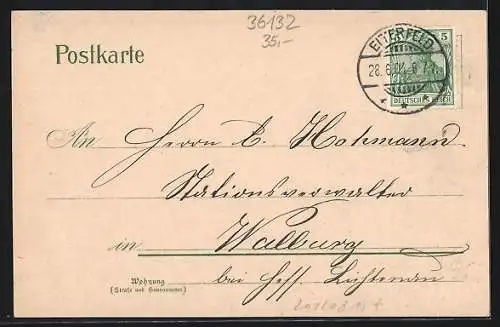 36132
35,-
Postkarte
5
EITERFELD
28.6.
DEUTSCHES REICH
* * *
An Herrn C. Hohmann
Stationsverwalter
in Walburg
bei Hess. Lichtenau
Wohnung
(Straße und Hausnummer)